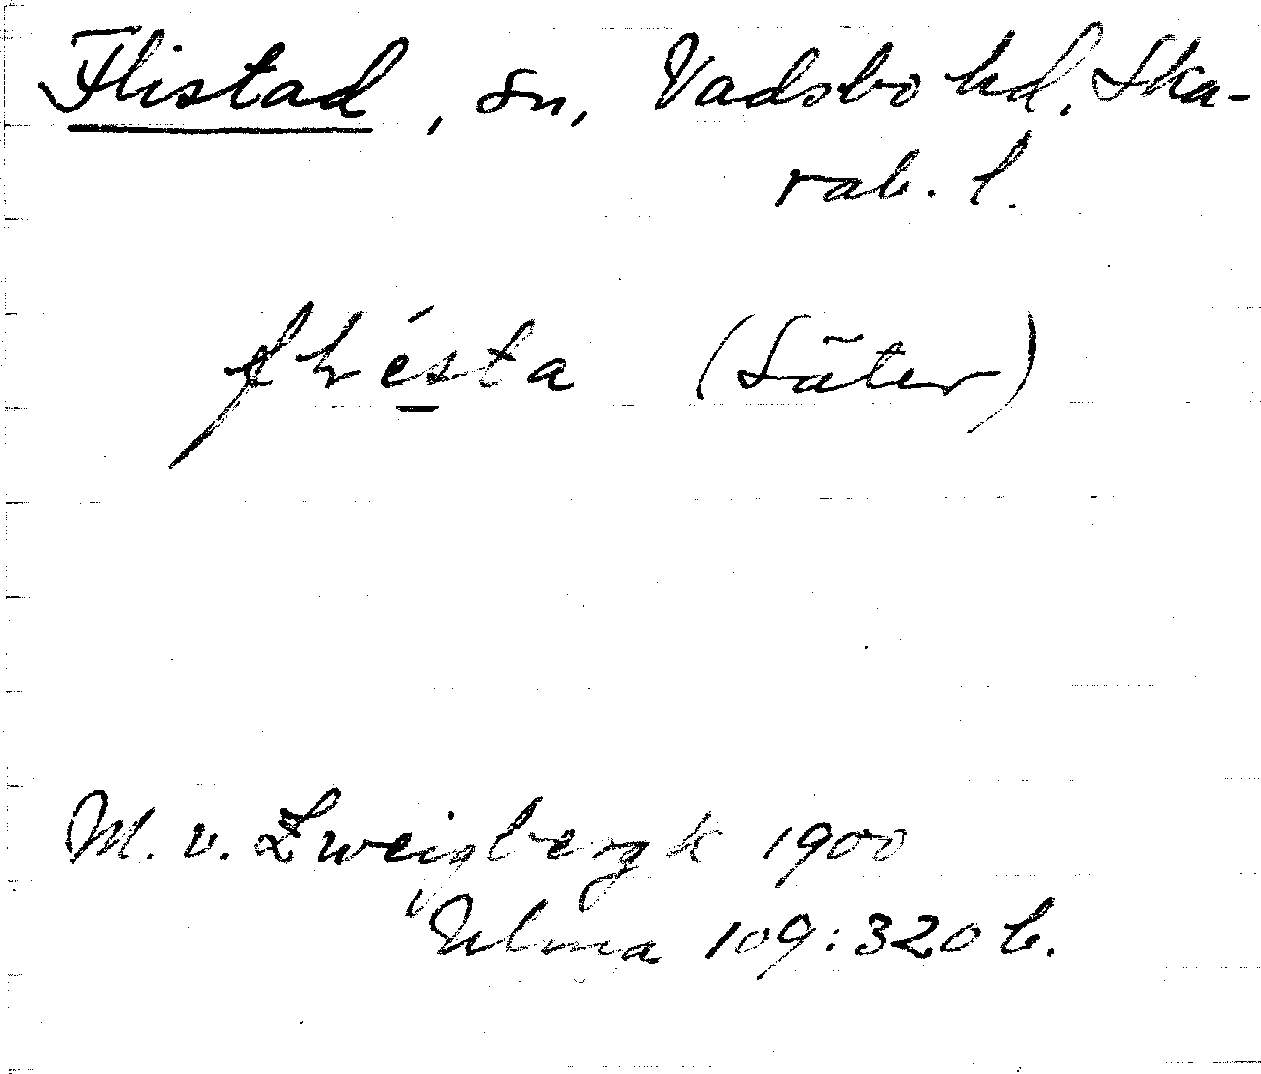 Flistad, sn, Vadsbo hd, Ska-
rab. l.
(Säter)
M. v. Zweigbergk 1900
Ulma 109:320 b.